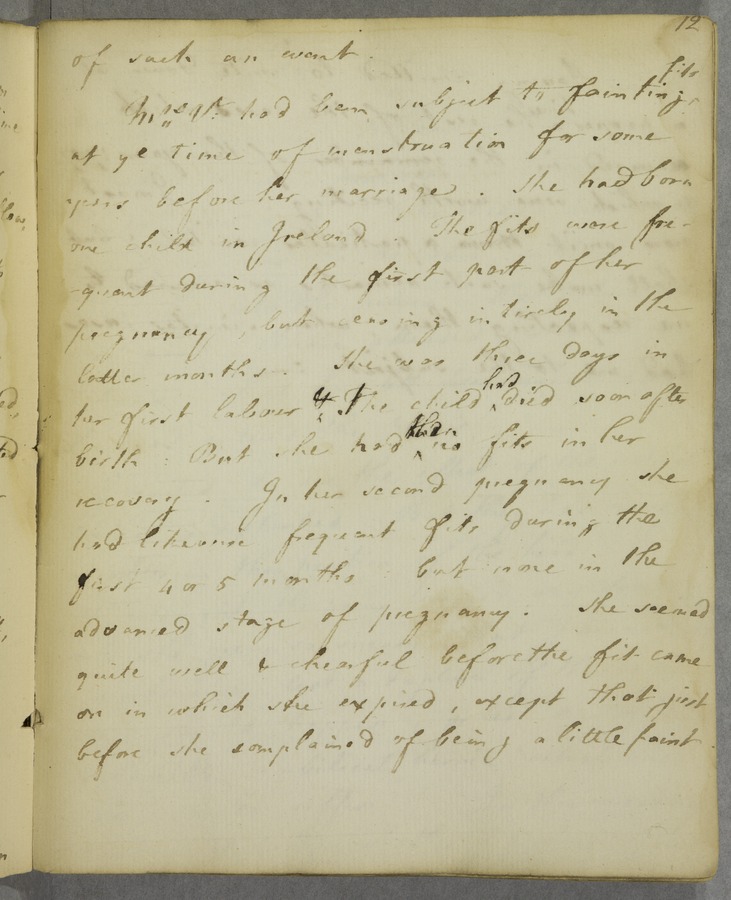 12
of such an want.
had been subject to fainting fits
at ye time of menstruation for some
years before her marriage. She had born
one child in Ireland. The fits were fre-
-quent during the first part of her
pregnancy, but ceasing intirely in the
latter months. She was three days in
her first labour & The child had died soon after
birth. But she had then no fits in her
recovery. In her second pregnancy she
had likewise frequent fits during the
first 4 or 5 months but none in the
advanced stage of pregnancy. She seemed
quite well & chearful before the fit came
on in which she expired, except that just
before she complained of being a little faint